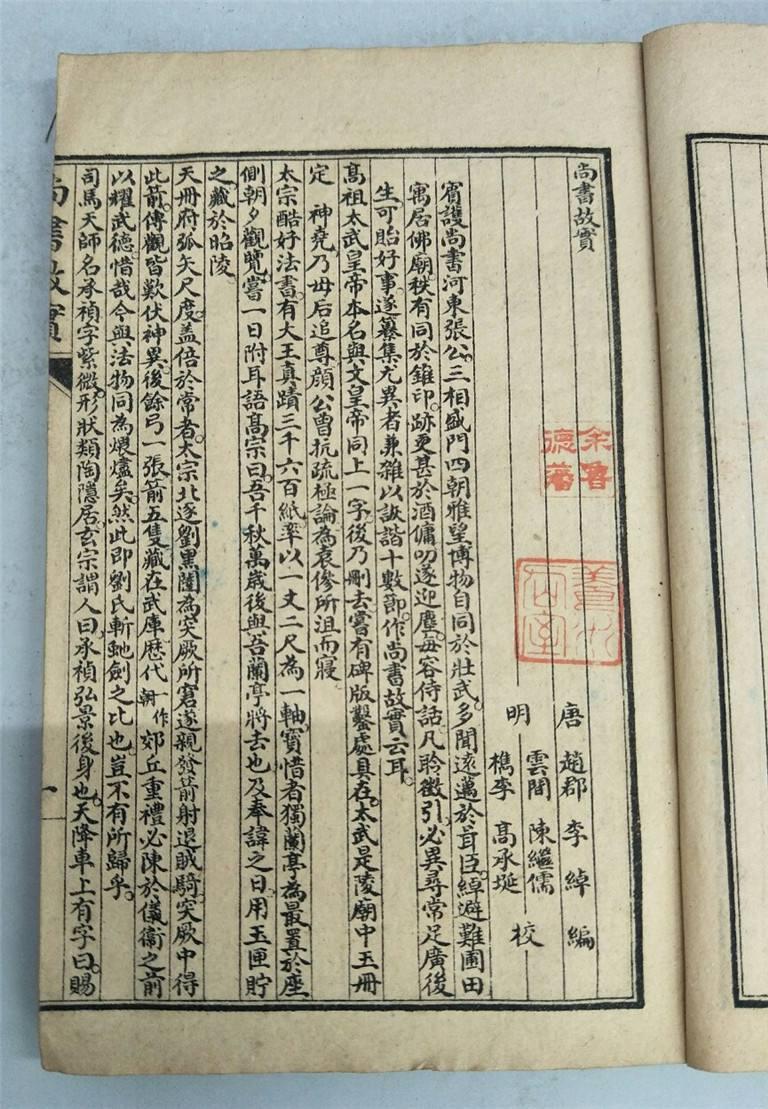 尚書故實
唐 趙郡 李 綽 編
明 雲間 陳繼儒
檇李 高承埏 校
賓護尚書河東張公。三相盛門四朝雅望博物自同於壯武。多聞遠邁於胥臣。綽避難圃田
寓居佛廟。秩有同於錐印。跡更甚於酒傭。叨遂迎塵。每容侍話。凡聆徵引。必異尋常足廣後
生。可貽好事。遂纂集尤異者兼雜以詼諧十數節。作尚書故實云耳。
高祖太武皇帝本名與文皇帝同上一字。後乃刪去。嘗有碑版鑿處具在。太武是陵廟中玉冊
定 神堯乃母后追尊顏公曾抗疏極論。為袁傪所沮而寢
太宗酷好法書。有大王真蹟三千六百紙。率以一丈二尺為一軸。寶惜者獨蘭亭為最。置於座
側朝夕觀覽。嘗一日附耳語高宗曰。吾千秋萬歲後與吾蘭亭將去也。及奉諱之日。用玉匣貯
之。藏於昭陵。
天冊府弧矢尺度。蓋倍於常者。太宗北逐劉黑闥為突厥所窘。遂親發箭射退賊騎。突厥中得
此箭。傳觀皆歎伏神異。後餘弓一張箭五隻。藏在武庫。歷代一作朝郊丘重禮必陳於儀衛之前
以耀武德。惜哉今與法物同為煨燼矣。然此即劉氏斬虵劍之比也。豈不有所歸乎。
司馬天師名承禎字紫微。形狀類陶隱居玄宗謂人曰。承禎弘景後身也。天降車上有字曰。賜
尚書故實
一
德藩